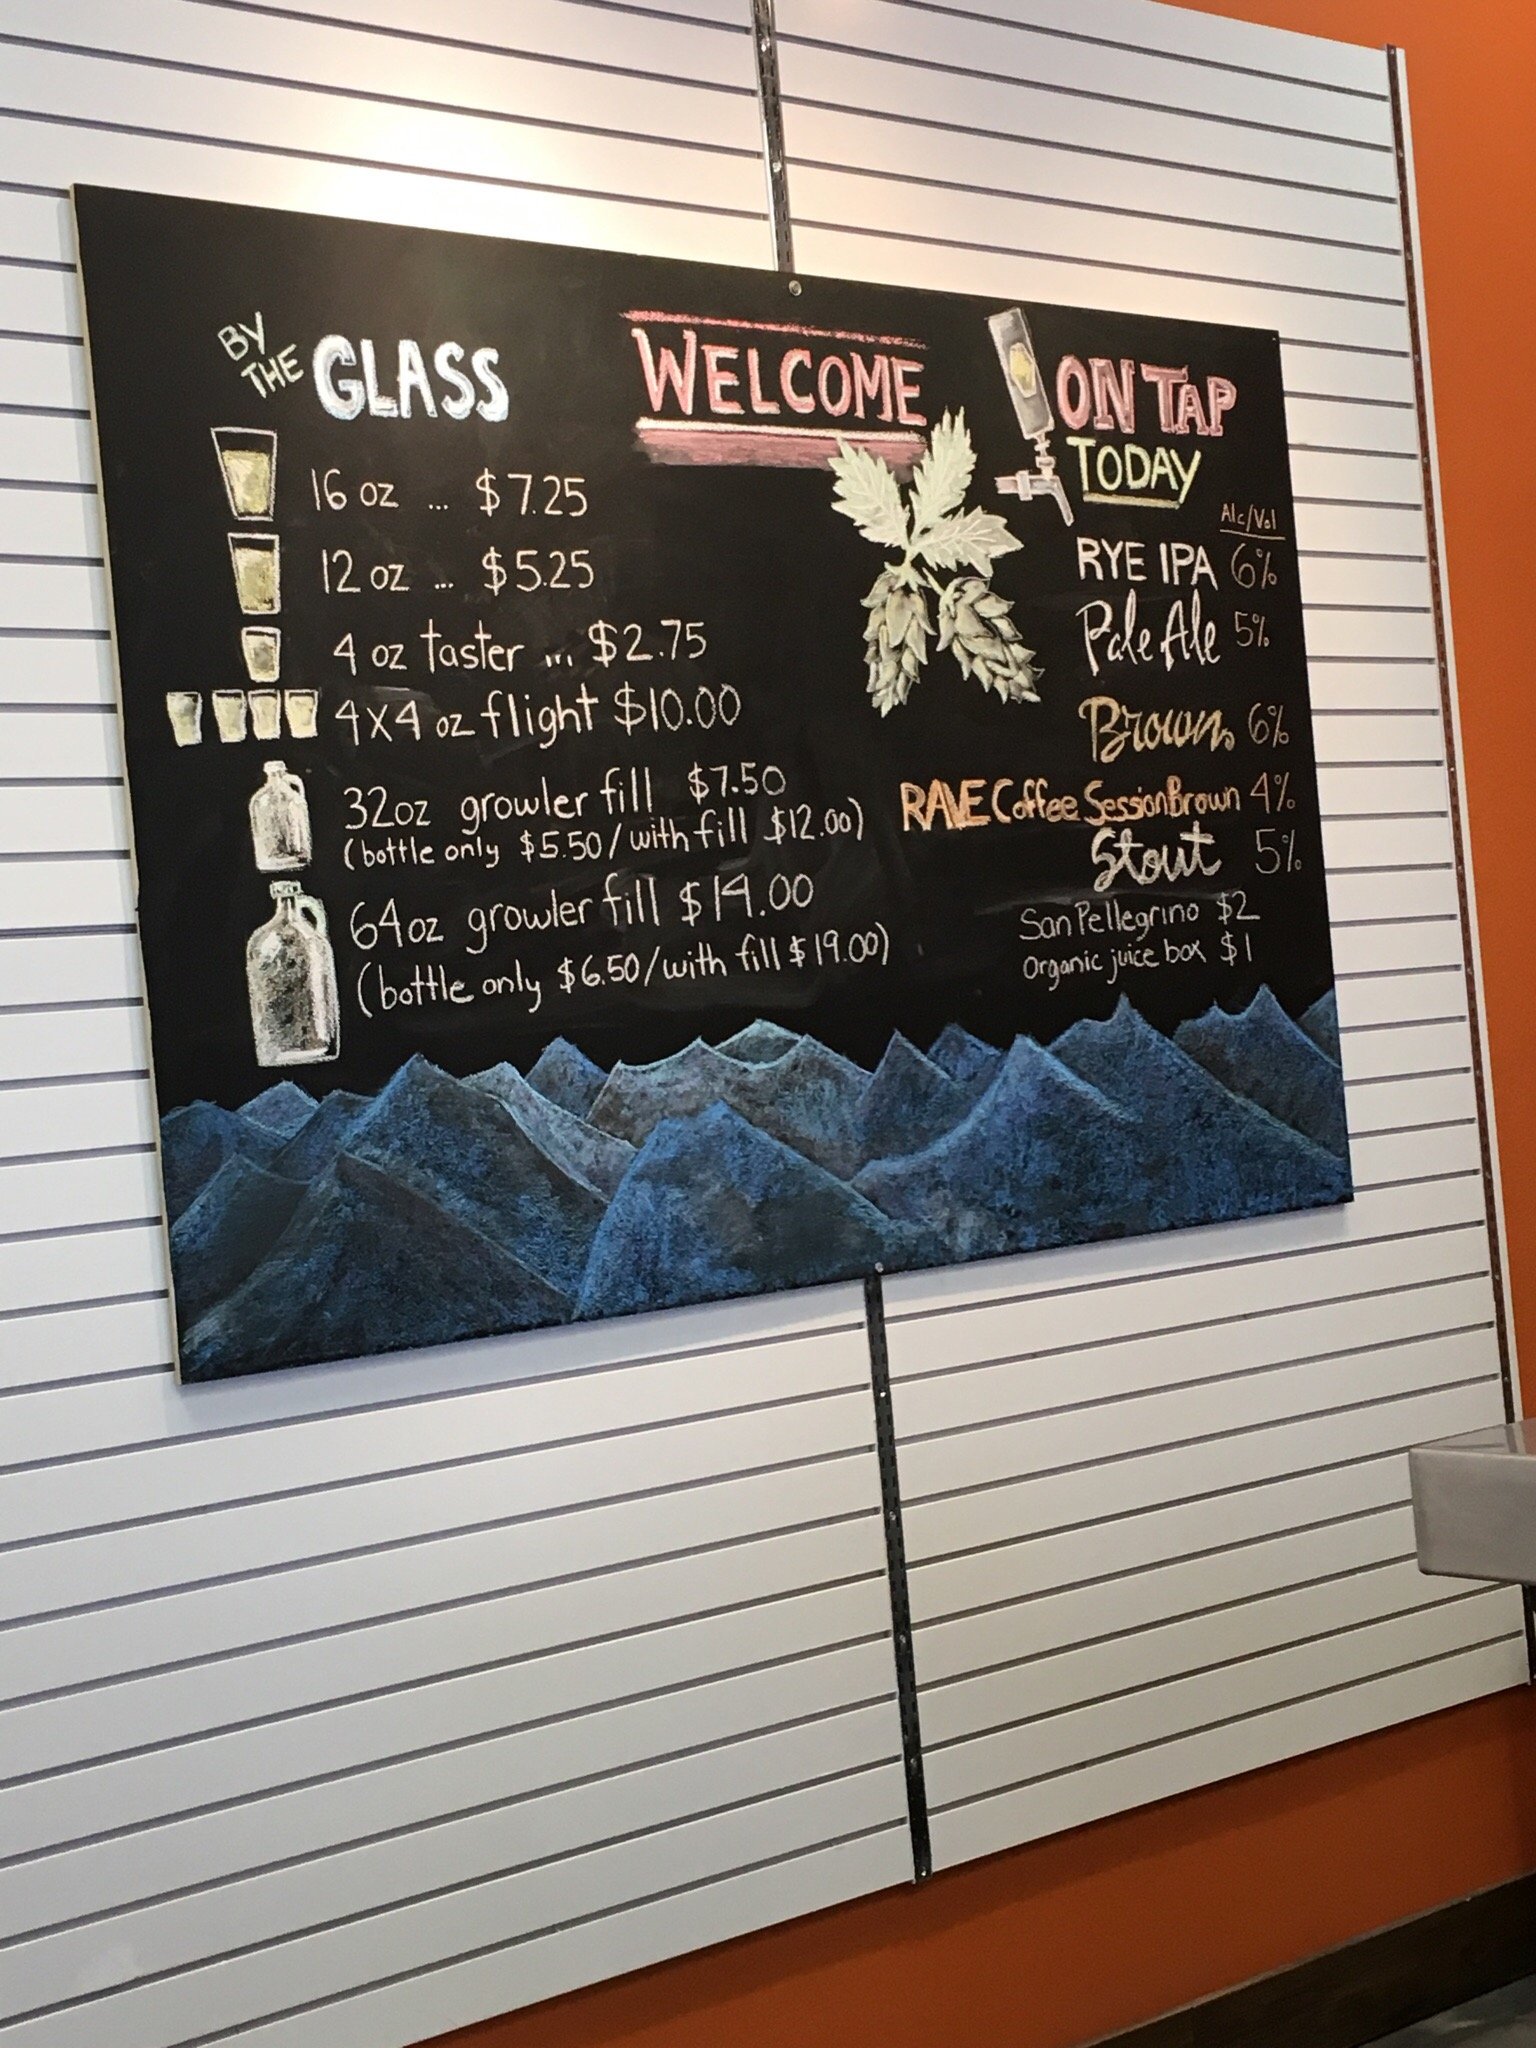 BY
THE GLASS
16 oz ... $7.25
12 oz ... $5.25
4 oz taster ... $2.75
4x4 oz flight $10.00
32oz growler fill $7.50
(bottle only $5.50/with fill $12.00)
64oz growler fill $14.00
(bottle only $6.50/with fill $19.00)
WELCOME
ON TAP
TODAY
Alc/Vol
RYE IPA 6%
Pale Ale 5%
Brown 6%
RAVE Coffee Session Brown 4%
Stout 5%
San Pellegrino $2
Organic juice box $1